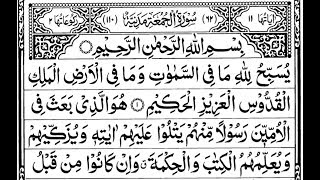 اٰیَاتُهَا ۱۱ (۶۲) سُوْرَةُ الْجُمُعَةِ مَدَنِیَّةٌ (۱۱۰) رُكُوْعَاتُهَا ۲
بِسْمِ اللّٰهِ الرَّحْمٰنِ الرَّحِیْمِ
یُسَبِّحُ لِلّٰهِ مَا فِی السَّمٰوٰتِ وَمَا فِی الْاَرْضِ الْمَلِكِ
الْقُدُّوْسِ الْعَزِیْزِ الْحَكِیْمِ ۝ هُوَ الَّذِیْ بَعَثَ فِی
الْاُمِّیّٖنَ رَسُوْلًا مِّنْهُمْ یَتْلُوْا عَلَیْهِمْ اٰیٰتِهٖ وَیُزَكِّیْهِمْ
وَیُعَلِّمُهُمُ الْكِتٰبَ وَالْحِكْمَةَ وَاِنْ كَانُوْا مِنْ قَبْلُ